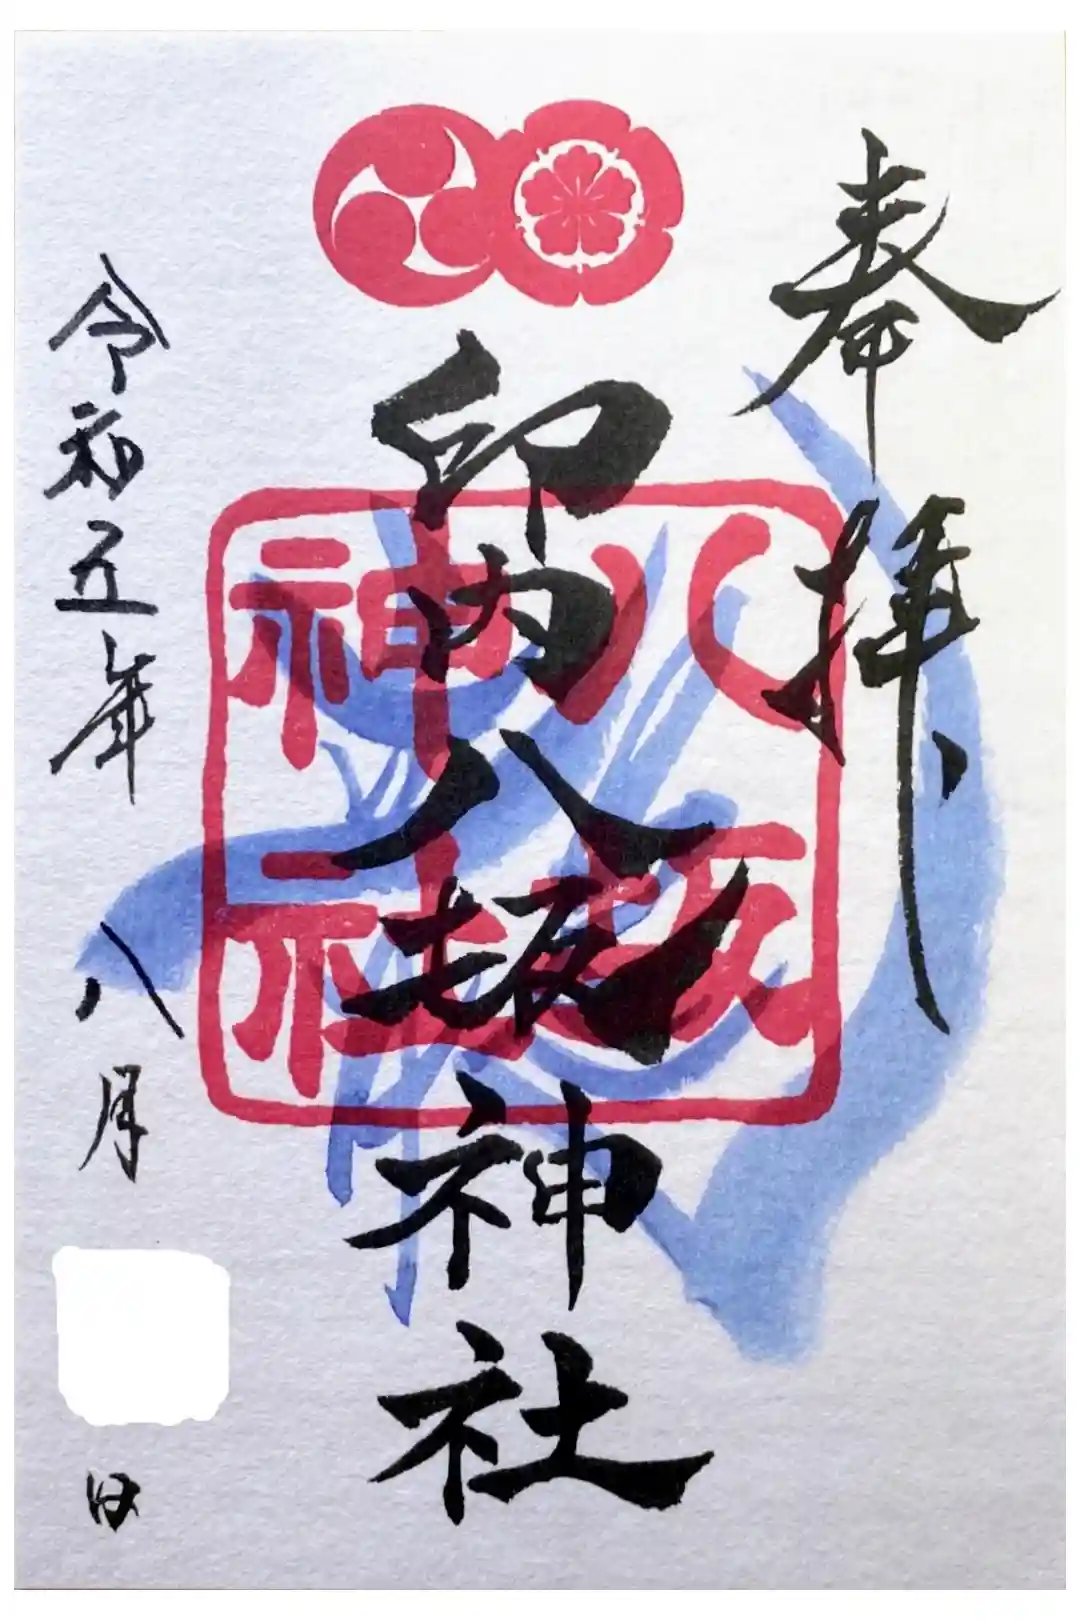 奉拝
印内八坂神社
八坂
神社
令和五年八月 日